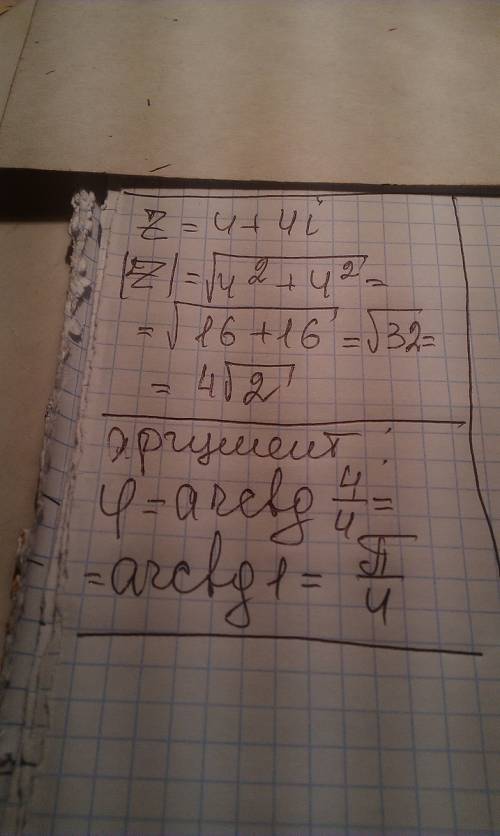 z = 4 + 4i
|z| = √4² + 4² =
= √16 + 16 = √32 =
= 4√2
аргумент:
φ = arctg 4/4 =
= arctg 1 = π/4